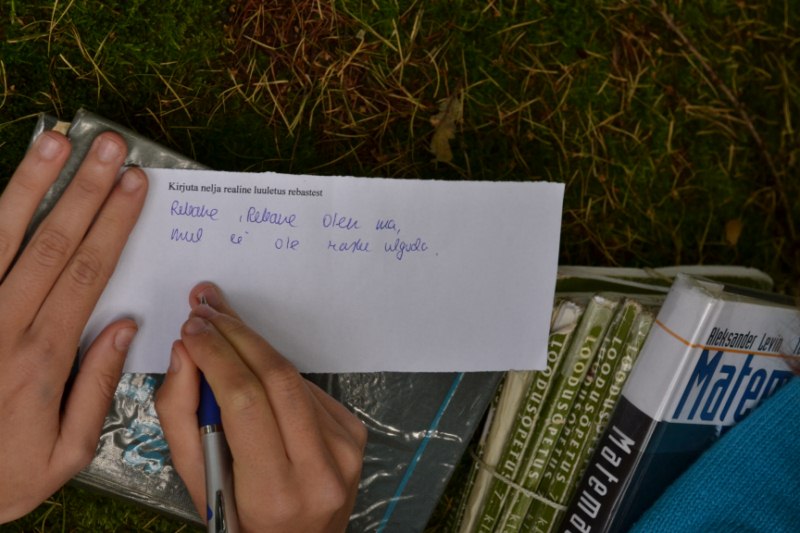 Kirjuta nelja realine luuletus rebastest
Rebane, Rebane olen ma,
mul ei ole raske ulguda.
LOODUSÕPETUS 7. kl
LOODUSÕPETUS 7. kl
LOODUSÕPETUS
Aleksander Levin
Matem
Matema